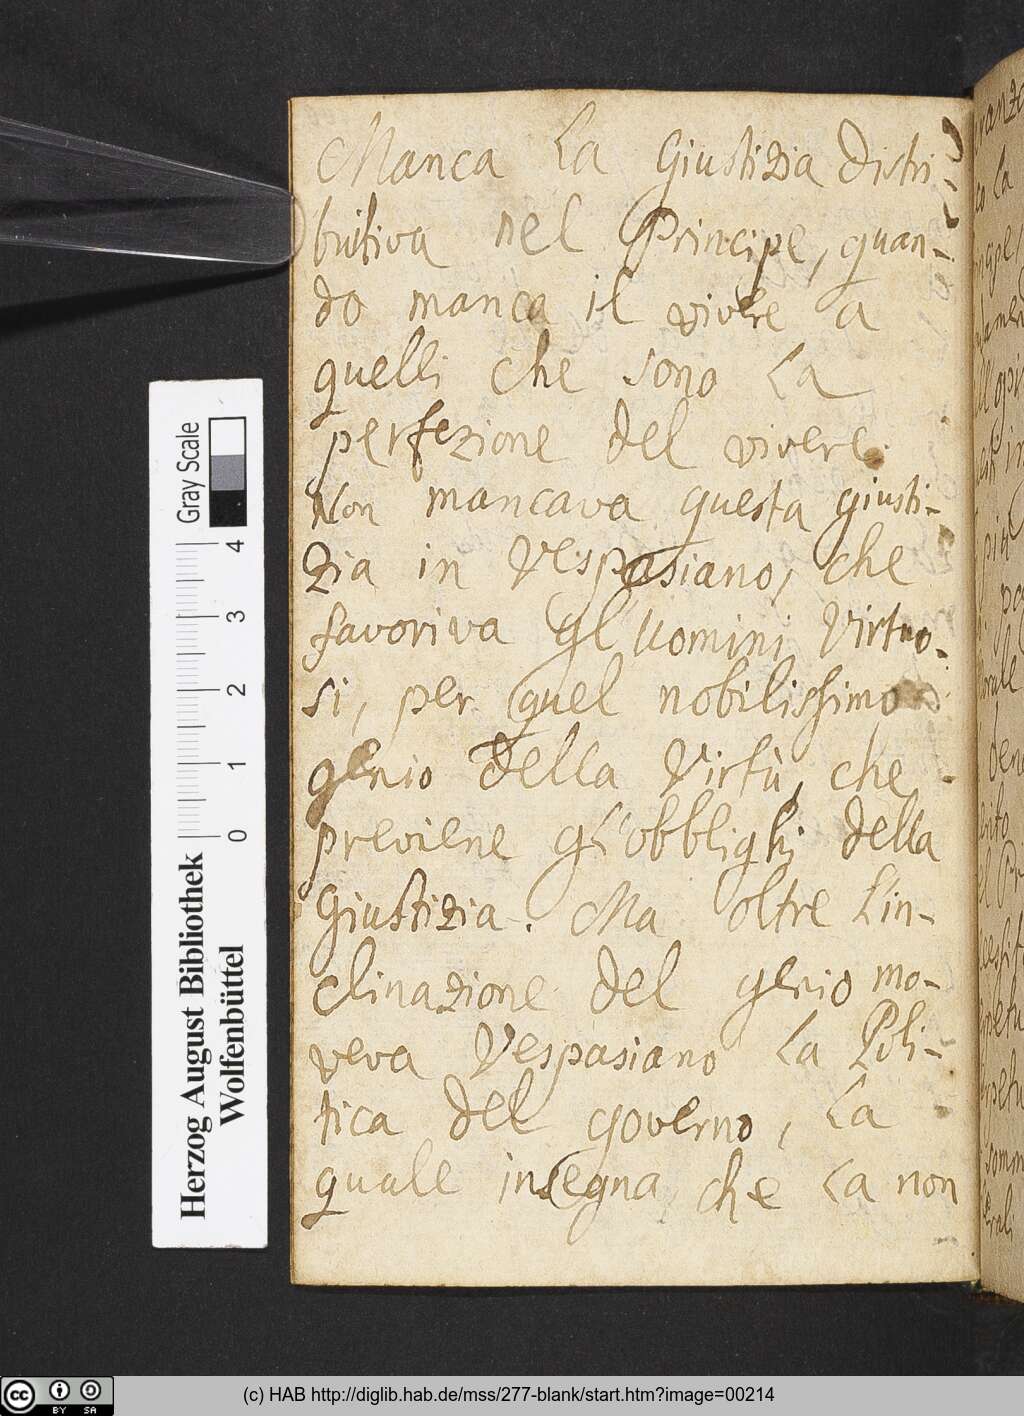 Manca la Giustizia Distri-
butiva nel Principe, quan-
do manca il vivere a
quelli che sono la
perfezione del vivere.
Non mancava questa giusti-
zia in Vespasiano, che
favoriva gl'uomini virtuo-
si, per quel nobilissimo
genio della Virtù, che
previene gl'obblighi della
Giustizia. Ma oltre l'in-
clinazione del genio mo-
veva Vespasiano la Poli-
tica del governo, la
quale insegna, che la non
Gray Scale
4
3
2
1
0
Herzog August Bibliothek
Wolfenbüttel
cc BY SA
(c) HAB http://diglib.hab.de/mss/277-blank/start.htm?image=00214